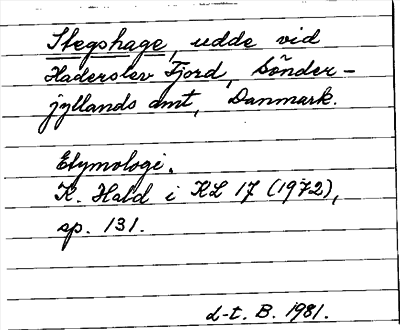 Stegshage, udde vid
Haderslev Fjord, Sönder-
jyllands amt, Danmark.
Etymologi.
K. Hald i KL 17 (1972),
sp. 131.
d-t. B. 1981.